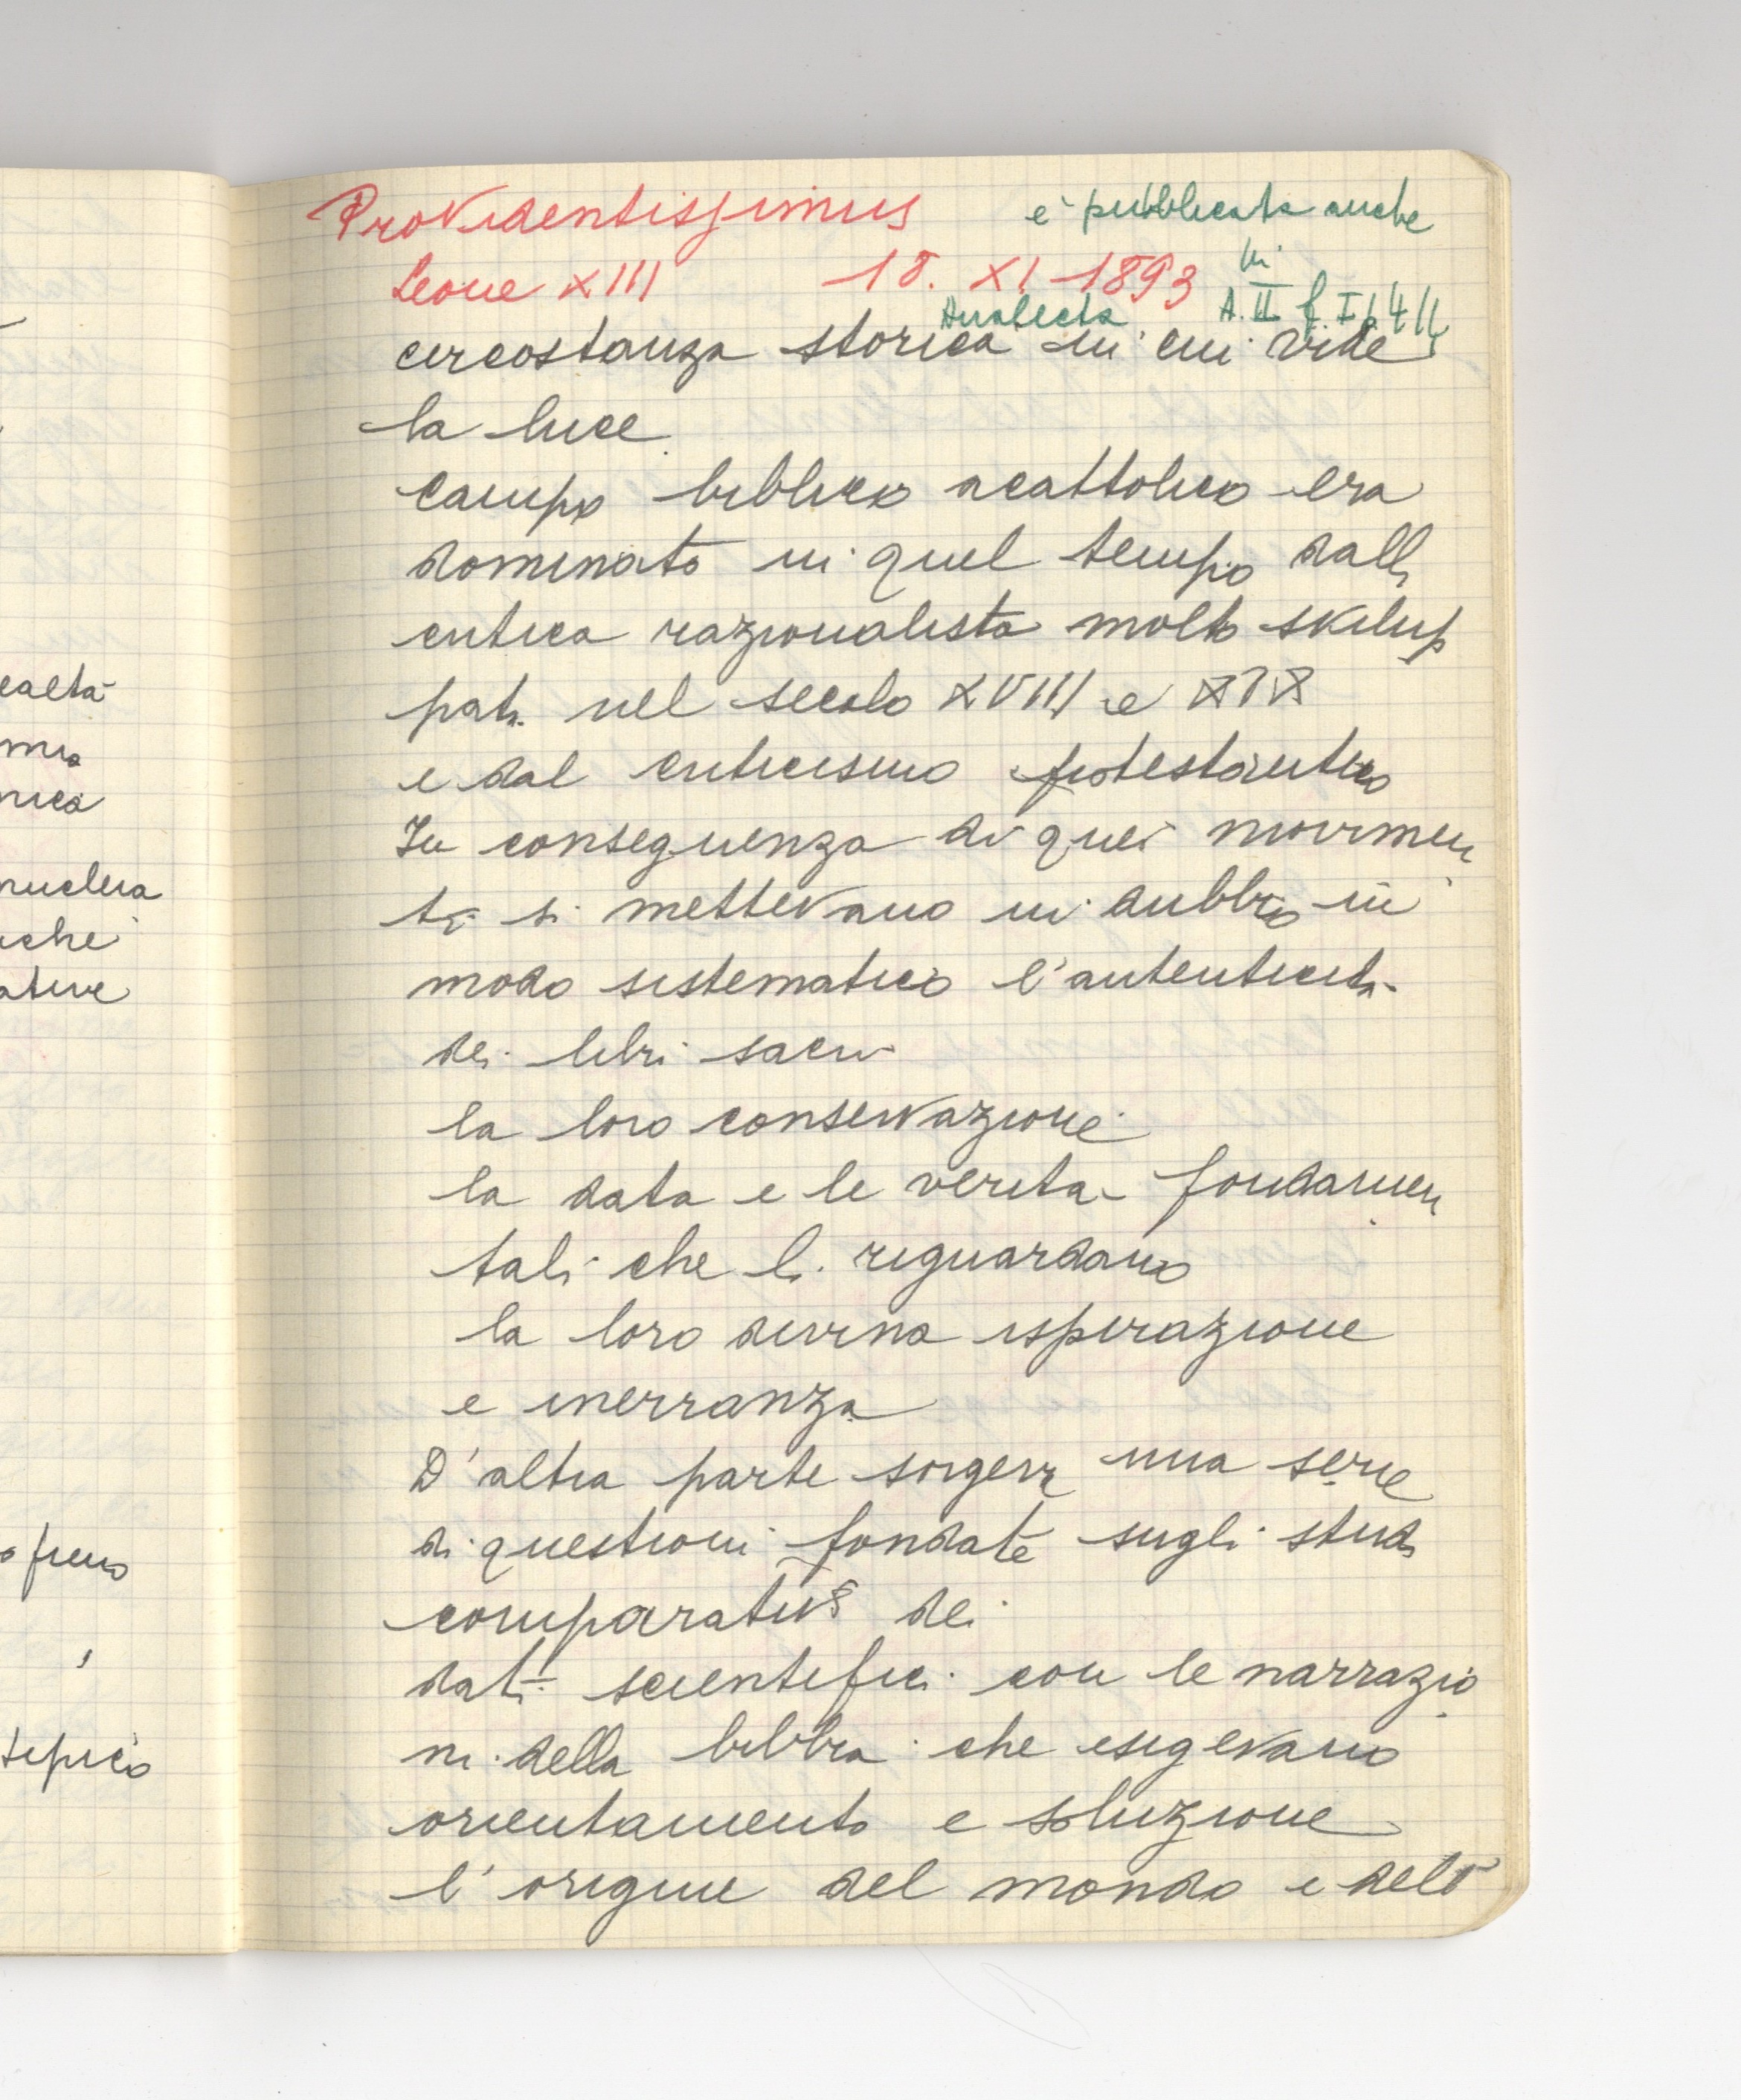 ealtà
mia
nica
nuclea
che
ative
freno
tipico
Providentissimus
è pubblicata anche
in
Leone XIII 18. XI 1893
Analecta A. II f I p 4
circostanza storica in cui vide
la luce
campo biblico acattolico era
dominato in quel tempo dalla
critica razionalista molto svilup
pata nel secolo XVIII e XIX
e dal criticismo protestantico
In conseguenza di quei movimen
ti si mettevano in dubbio in
modo sistematico l'autenticità
dei libri sacri
la loro conservazione
la data e le verità fondamen
tali che li riguardano
la loro divina ispirazione
e inerranza
D'altra parte sorgeva una serie
di questioni fondate sugli studi
comparativi dei
dati scientifici con le narrazio
ni della bibbia che esigevano
orientamento e soluzione
l'origine del mondo e dell'